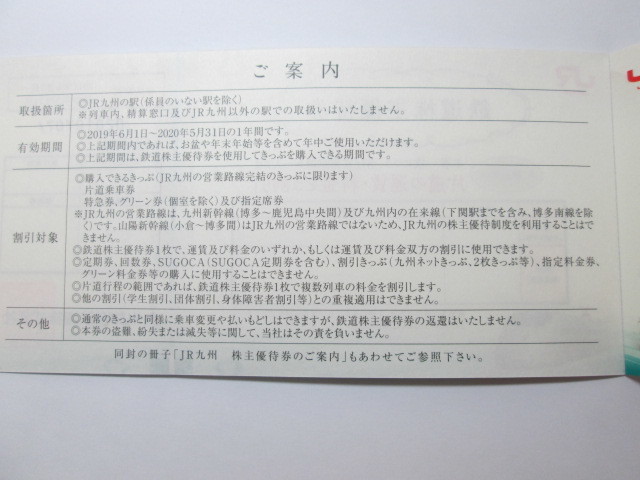 ご案内
取扱箇所
◎JR九州の駅(係員のいない駅を除く)
※列車内、精算窓口及びJR九州以外の駅での取扱いはいたしません。
有効期間
◎2019年6月1日〜2020年5月31日の1年間です。
◎上記期間内であれば、お盆や年末年始等を含めて年中ご使用いただけます。
◎上記期間は、鉄道株主優待券を使用してきっぷを購入できる期間です。
割引対象
◎購入できるきっぷ(JR九州の営業路線完結のきっぷに限ります)
片道乗車券
特急券、グリーン券(個室を除く)及び指定席券
※JR九州の営業路線は、九州新幹線(博多〜鹿児島中央間)及び九州内の在来線(下関駅までを含み、博多南線を除
く)です。山陽新幹線(小倉〜博多間)はJR九州の営業路線ではないため、JR九州の株主優待制度を利用することはで
きません。
◎鉄道株主優待券1枚で、運賃及び料金のいずれか、もしくは運賃及び料金双方の割引に使用できます。
◎定期券、回数券、SUGOCA(SUGOCA定期券を含む)、割引きっぷ(九州ネットきっぷ、2枚きっぷ等)、指定料金券、
グリーン料金券等の購入に使用することはできません。
◎片道行程の範囲であれば、鉄道株主優待券1枚で複数列車の料金を割引します。
◎他の割引(学生割引、団体割引、身体障害者割引等)との重複適用はできません。
その他
◎通常のきっぷと同様に乗車変更や払いもどしはできますが、鉄道株主優待券の返還はいたしません。
◎本券の盗難、紛失または滅失等に関して、当社はその責を負いません。
同封の冊子「JR九州　株主優待券のご案内」もあわせてご参照下さい。